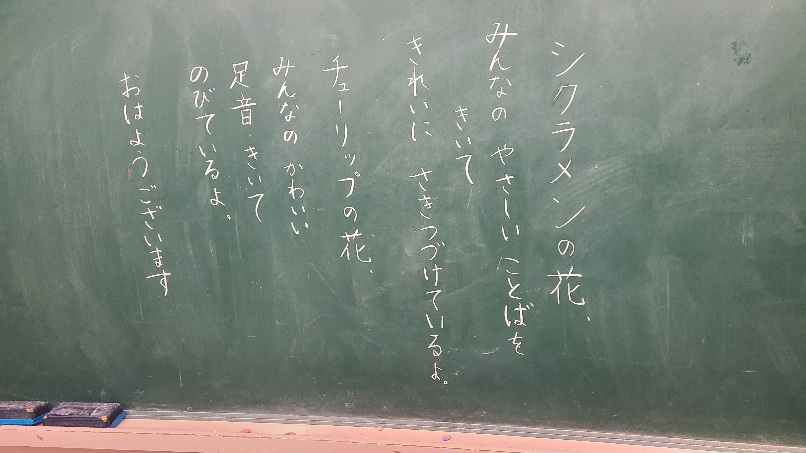 シクラメンの花、
みんなの やさしい ことばを
きいて
きれいに さきつづけているよ。
チューリップの花、
みんなの かわいい
足音 きいて
のびているよ。
おはようございます